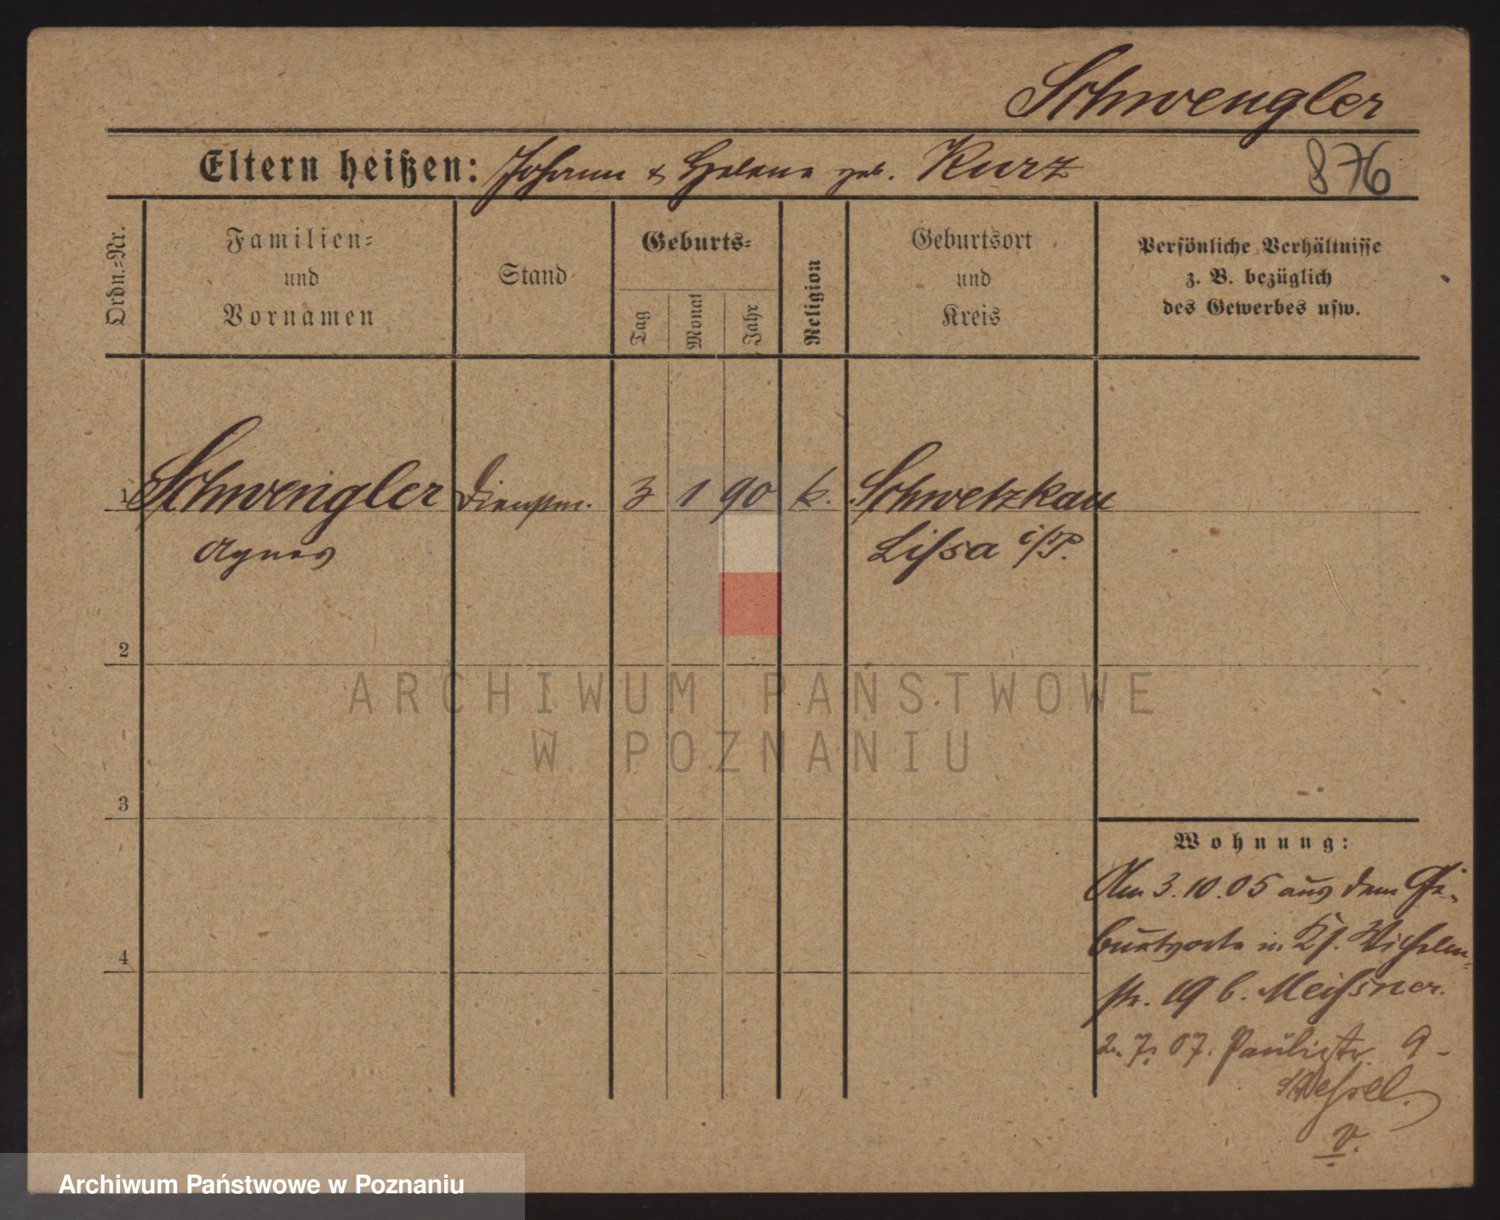 Schwengler
Eltern heißen: Johann & Helene geb. Kurz
876
Ordn.-Nr.
Familien-
und
Vornamen
Stand
Geburts-
Tag
Monat
Jahr
Religion
Geburtsort
und
Kreis
Persönliche Verhältnisse
z. B. bezüglich
des Gewerbes usw.
1 Schwengler Dienstm. 3 1 90 k. Schwetzkau
Agnes Lissa i/P.
2
ARCHIWUM PAŃSTWOWE
W POZNANIU
3
Wohnung:
Am 3.10.05 aus dem Ge-
burtsorte in Wilhelm-
str. 19 b. Meissner.
2.7.07. Paulistr. 9 -
v.
4
Archiwum Państwowe w Poznaniu